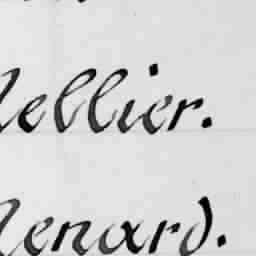 ellier.
enard.